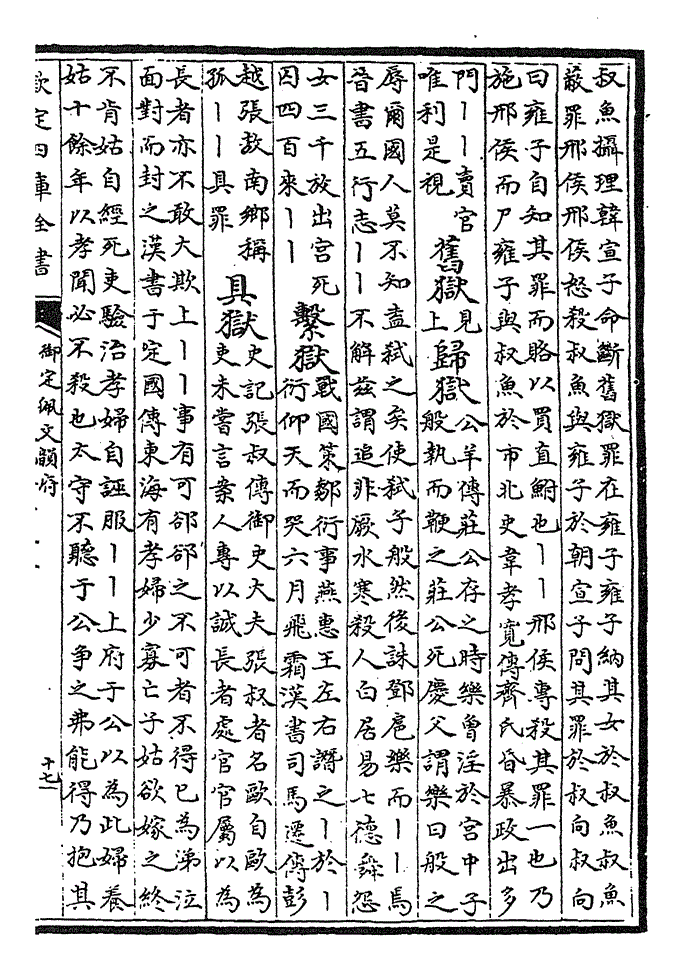 叔魚攝理韓宣子命斷舊獄罪在雍子雍子納其女於叔魚叔魚
蔽罪邢侯邢侯怒殺叔魚與雍子於朝宣子問其罪於叔向叔向
曰雍子自知其罪而賂以買直鮒也丨丨邢侯專殺其罪一也乃
施邢侯而尸雍子與叔魚於市北史韋孝寬傳齊氏昏暴政出多
門丨丨賣官
唯利是視
舊獄
見
上
歸獄
公羊傳莊公存之時樂曾淫於宮中子
般執而鞭之莊公死慶父謂樂曰般之
辱爾國人莫不知盍弒之矣使弒子般然後誅鄧扈樂而丨丨焉
晉書五行志丨丨不解茲謂追非厥水寒殺人白居易七德舞怨
女三千放出宮死
囚四百來丨丨
繫獄
戰國策鄒衍事燕惠王左右譖之丨於丨
衍仰天而哭六月飛霜漢書司馬遷傳彭
越張敖南鄉稱
孤丨丨具罪
具獄
史記張叔傳御史大夫張叔者名歐自歐為
吏未嘗言案人專以誠長者處官官屬以為
長者亦不敢大欺上丨丨事有可卻卻之不可者不得已為涕泣
面對而封之漢書于定國傳東海有孝婦少寡亡子姑欲嫁之終
不肯姑自經死吏驗治孝婦自誣服丨丨上府于公以為此婦養
姑十餘年以孝聞必不殺也太守不聽于公爭之弗能得乃抱其
欽定四庫全書
御定佩文韻府
十七